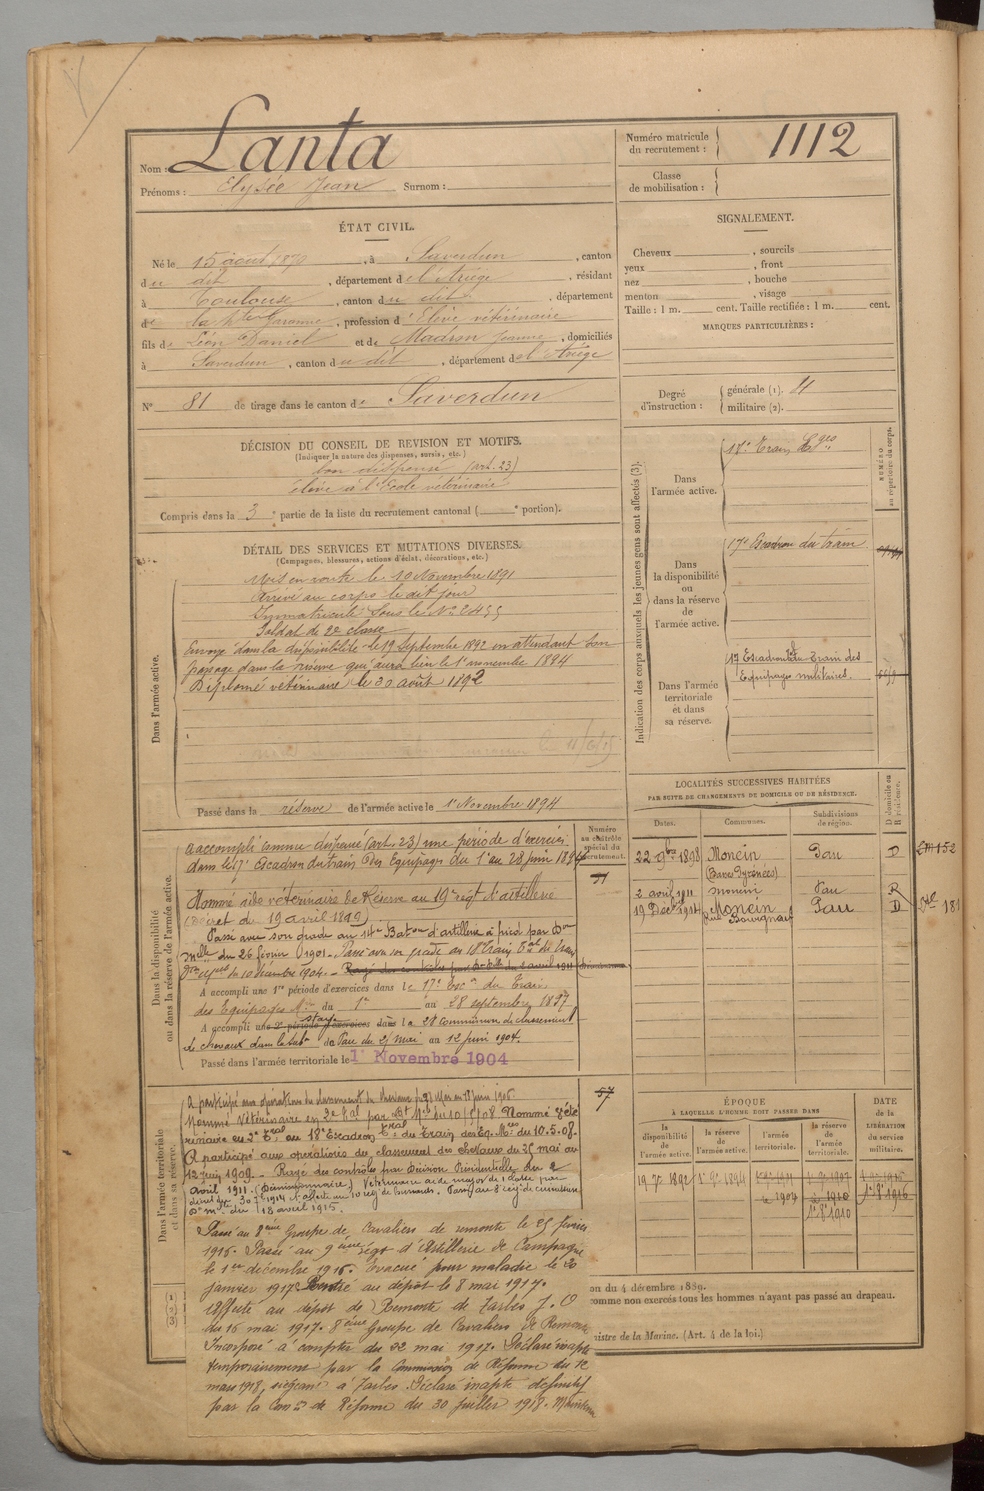 Nom : Lanta
Prénoms : Elysée Jean Surnom :
Numéro matricule du recrutement : 1112
Classe de mobilisation :
ÉTAT CIVIL.
Né le 15 août 1870, à Saverdun, canton
du dit, département de l'Ariège, résidant
à Toulouse, canton du dit, département
de la Hte Garonne, profession d'Elève vétérinaire
fils de Léon Daniel et de Madron Jeanne, domiciliés
à Saverdun, canton du dit, département de l'Ariège
No 81 de tirage dans le canton de Saverdun
SIGNALEMENT.
Cheveux , sourcils
yeux , front
nez , bouche
menton , visage
Taille : 1 m. cent. Taille rectifiée : 1 m. cent.
MARQUES PARTICULIÈRES :
Degré d'instruction : générale (1).
militaire (2).
DÉCISION DU CONSEIL DE REVISION ET MOTIFS.
(Indiquer la nature des dispenses, sursis, etc.)
bon dispensé (art. 23)
élève à l'Ecole vétérinaire
Compris dans la 3e partie de la liste du recrutement cantonal ( e portion).
DÉTAIL DES SERVICES ET MUTATIONS DIVERSES.
(Campagnes, blessures, actions d'éclat, décorations, etc.)
Dans l'armée active.
Mis en route le 10 Novembre 1891
Arrivé au corps le dit jour
Immatriculé sous le No
Soldat de 2e classe
Envoyé dans la disponibilité le 19 Septembre 1892 en attendant son
passage dans la réserve qui aura lieu le 1er novembre 1894
Diplomé vétérinaire le 30 août 1892
Passé dans la réserve de l'armée active le 1er Novembre 1894
Dans la disponibilité ou dans la réserve de l'armée active.
Numéro au contrôle spécial du recrutement.
a accompli comme dispensé (art. 23) une période d'exercices
dans le 17e Escadron du train des Equipages du 1er au 28 juin 1894
Nommé aide vétérinaire de Réserve au 19e régt d'artillerie
(Décret du 19 avril 1899)
Passé avec son grade au 14e Baton d'artillerie à pied par Don
Melle du 26 février 1901. Passé avec son grade au 18e Train
du 10 décembre 1904. Rayé des contrôles par du 2 avril 1911
A accompli une 1re période d'exercices dans le 17e Esc.on du Train
des Equipages du 1er au 28 septembre 1897
A accompli une 2e période d'exercices stage dans la 2e Commission de classement
de chevaux dans la subon de Pau du 25 mai au 12 juin 1904.
Passé dans l'armée territoriale le 1er Novembre 1904
Dans l'armée territoriale et dans sa réserve.
57
A participé aux opérations du classement de chevaux
Nommé Vétérinaire en 2e par Dt Mel du 10/5/08 Nommé Vété
rinaire en 2e au 18e Escadron du Train des Eq. Mres du 10.5.08.
A participé aux opérations du classement des chevaux du 25 mai au
12 juin 1909. Rayé des contrôles par Décision Présidentielle du 2
avril 1911. (Démissionnaire) Vétérinaire aide major de 2e classe par
Don mlle du 18 avril 1915.
Passé au 8ème Groupe de Cavaliers de remonte le 25 février
1916. Passé au 9ème régt d'Artillerie de Campagne
le 1er décembre 1916. Evacué pour maladie le 20
janvier 1917. Rentré au dépôt le 8 mai 1917.
Affecté au dépôt de Remonte de Tarbes J. O
du 16 mai 1917. 8ème Groupe de Cavaliers de Remonte
Incorporé à compter du 22 mai 1917. Déclaré inapte
temporairement par la Commission de Réforme du 12
mars 1918, siégeant à Tarbes. Déclaré inapte définitif
par la Con de Réforme du 30 juillet 1918. Maintenu
Indication des corps auxquels les jeunes gens sont affectés (3).
NUMÉRO au répertoire du corps.
Dans l'armée active.
17e Train Eqges
Dans la disponibilité ou dans la réserve de l'armée active.
17e Escadron du train
Dans l'armée territoriale et dans sa réserve.
17 Escadron du Train des
Equipages militaires.
LOCALITÉS SUCCESSIVES HABITÉES
PAR SUITE DE CHANGEMENTS DE DOMICILE OU DE RÉSIDENCE.
Dates. Communes. Subdivisions de région. D domicile ou R résidence.
22 9bre 1898 Monein (Basses Pyrénées) Pau D
2 avril 1911 Monein Pau R
19 Décbre 1914 Monein Pau D
ÉPOQUE
À LAQUELLE L'HOMME DOIT PASSER DANS
la disponibilité de l'armée active. la réserve de l'armée active. l'armée territoriale. la réserve de l'armée territoriale.
DATE de la LIBÉRATION du service militaire.
19 7e 1892 1er 9e 1894
on du 4 décembre 1889.
comme non exercés tous les hommes n'ayant pas passé au drapeau.
nistre de la Marine. (Art. 4 de la loi.)